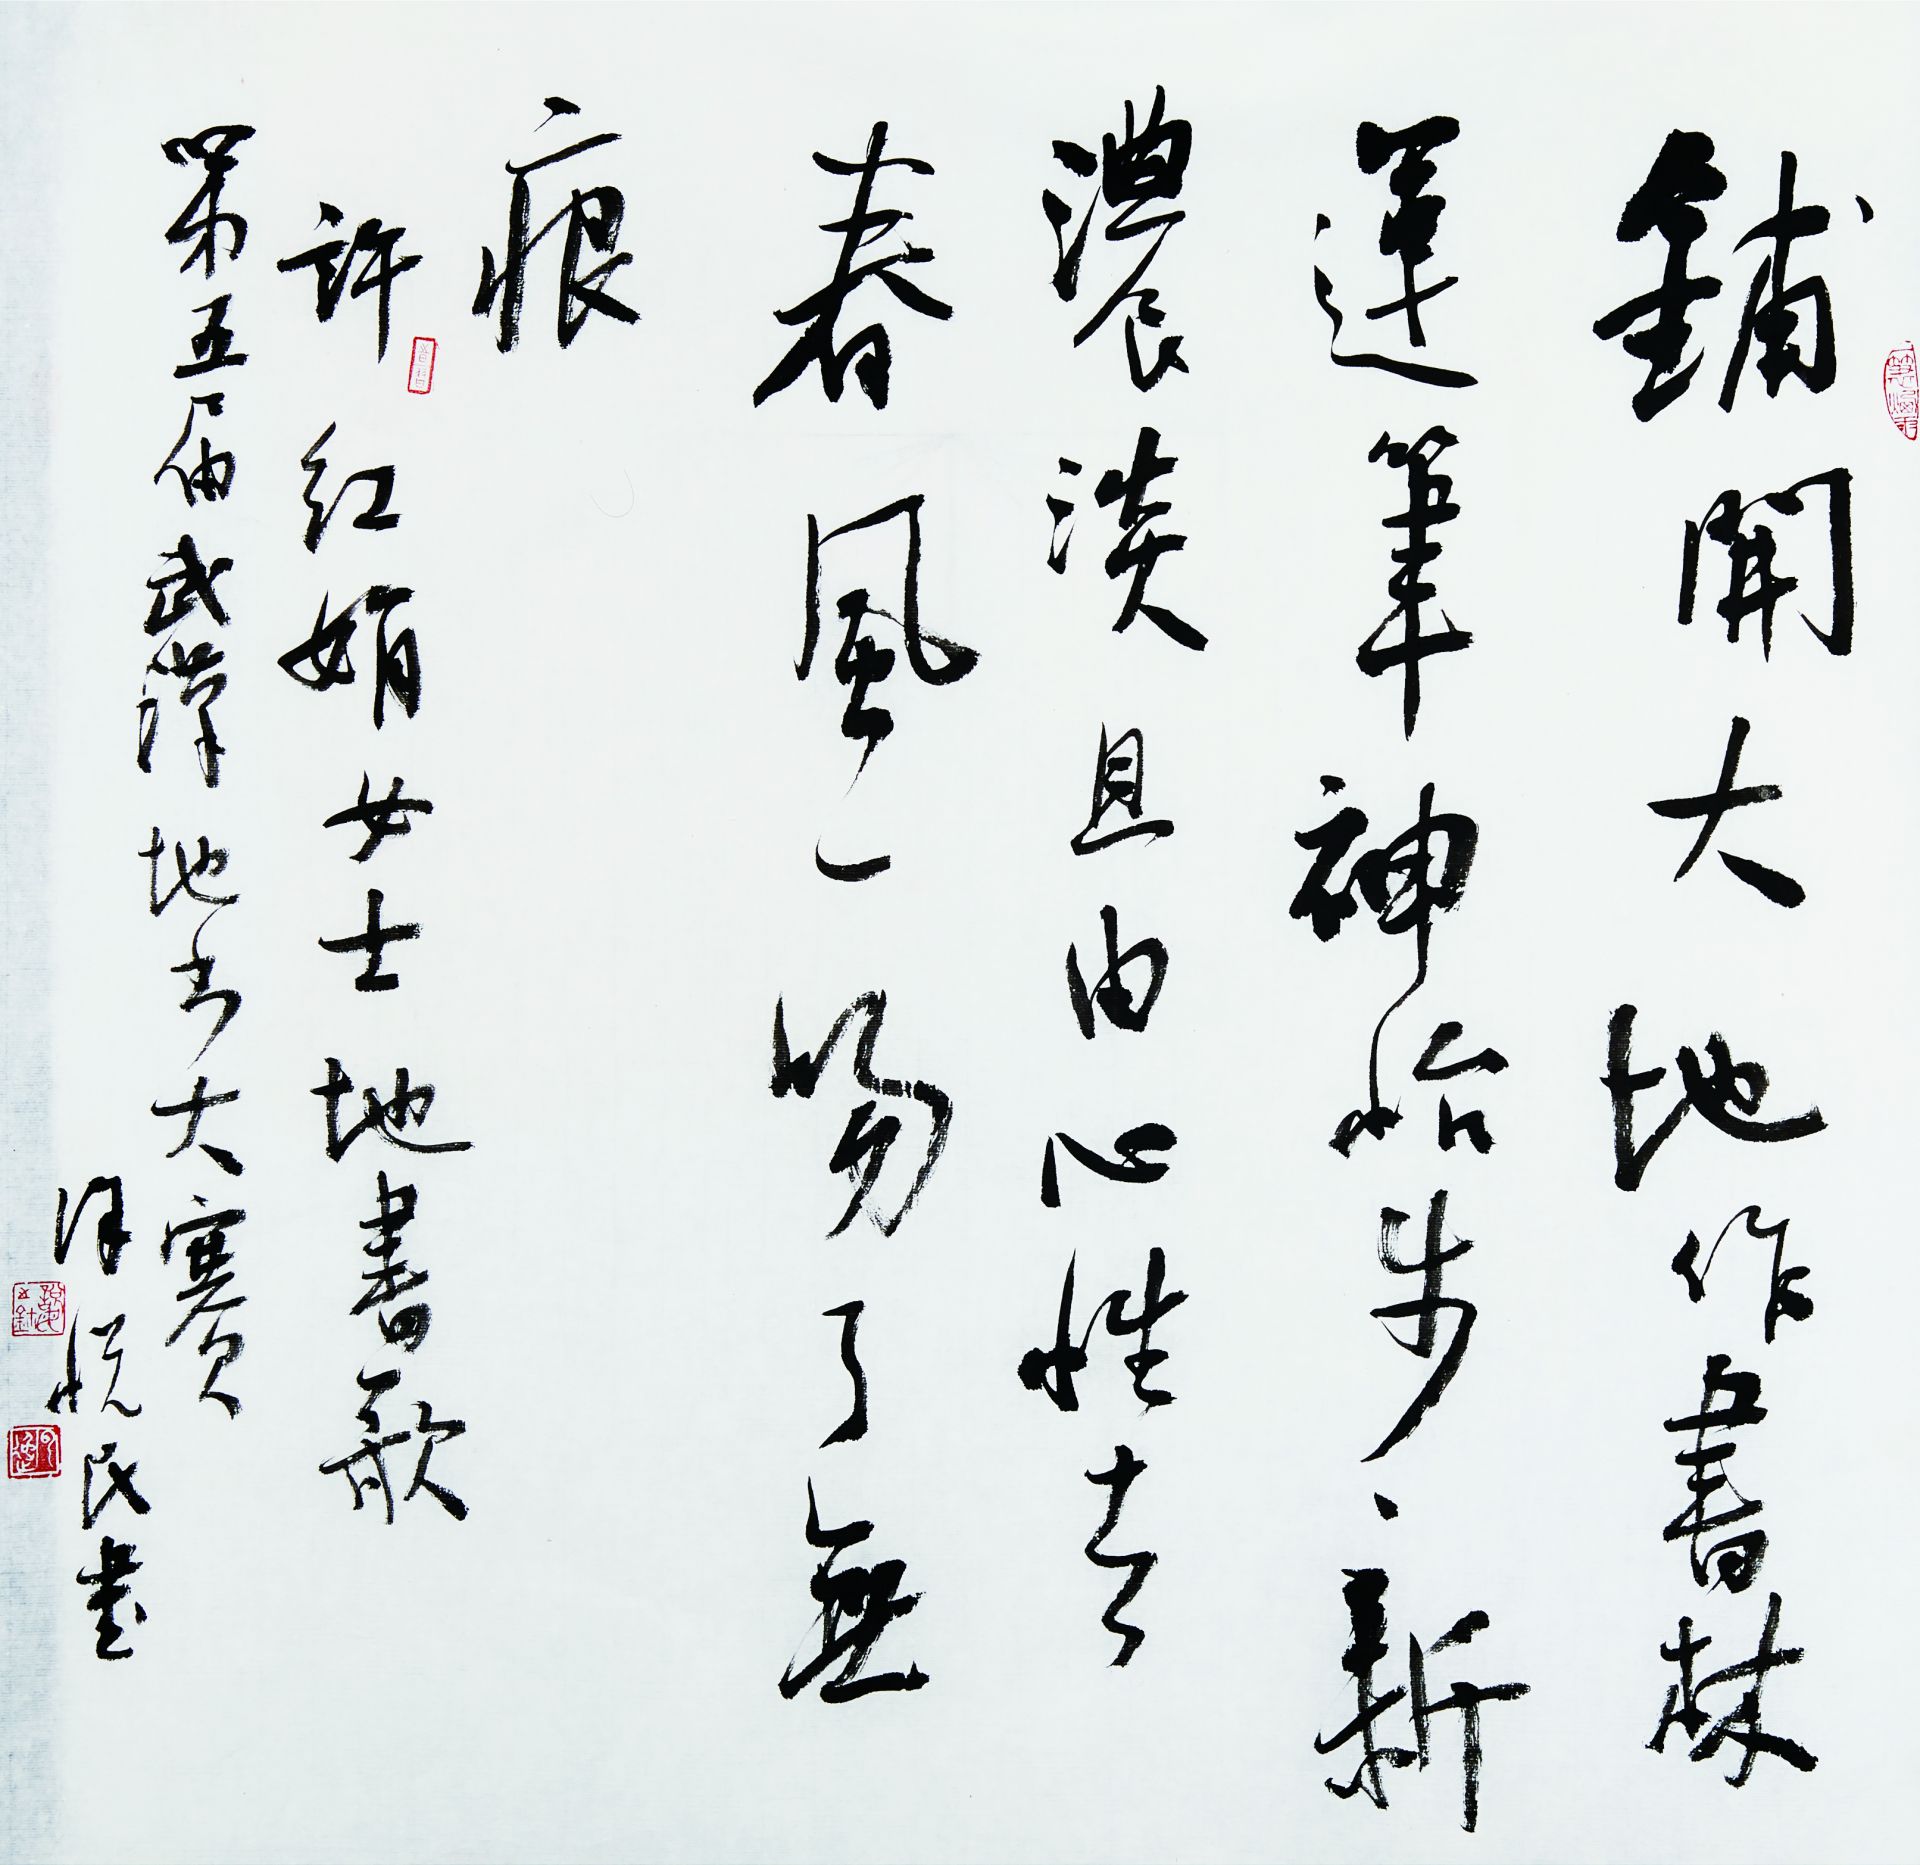 鋪開大地作書林
運筆神怡步々新
濃淡且由心性去
春風一場了無
痕
許紅娟女士地書歌
第五届武漢地书大賽
悦民書